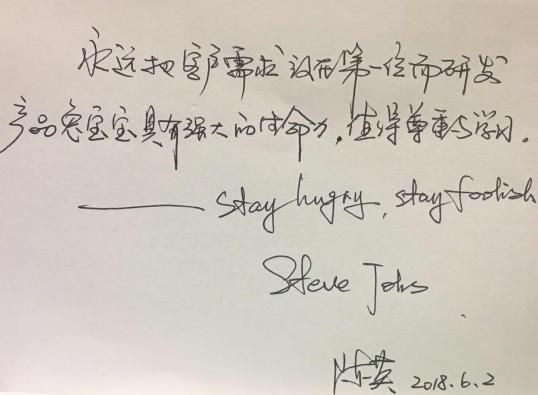 永远把客户需求设在第一位而研发
产品兔宝宝具有强大的生命力，值得尊重与学习。
—— stay hugry, stay foolish
Steve Jobs
2018.6.2